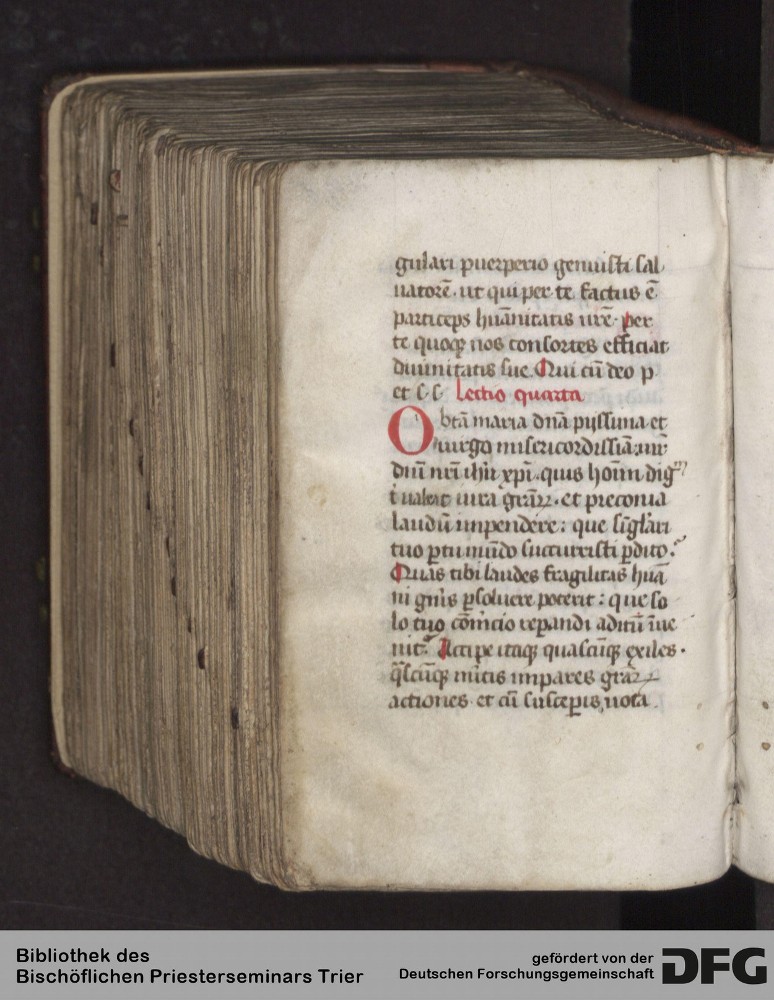 gulari puerperio genuisti sal
uatorē · ut qui per te factus ē
particeps huānitatis nrē · per
te quoqꝫ nos consortes efficiat
diuinitatis sue. Qui cū deo p
et s̄ s̄ Lectio quarta
O btā maria dnā pijssima et
uirgo misericordissīa mr̄
dnī nrī ihū xpī . quis hoīm dig
ualeat iura grāꝝ · et preconia
laudū impendere : que sīglāri
tuo ꝑtu mūdo succurristi ꝑdito ?
Quas tibi laudes fragilitas huā
ni gnīs ꝑsoluere poterit : que so
lo tuo cōmcio reparandi aditū īue
nit ? Accipe itaqꝫ quascūqꝫ exiles ·
q̄scūqꝫ mītis impares grāꝝ
actiones · et cū susceꝑis uota
Bibliothek des
Bischöflichen Priesterseminars Trier
gefördert von der
Deutschen Forschungsgemeinschaft DFG